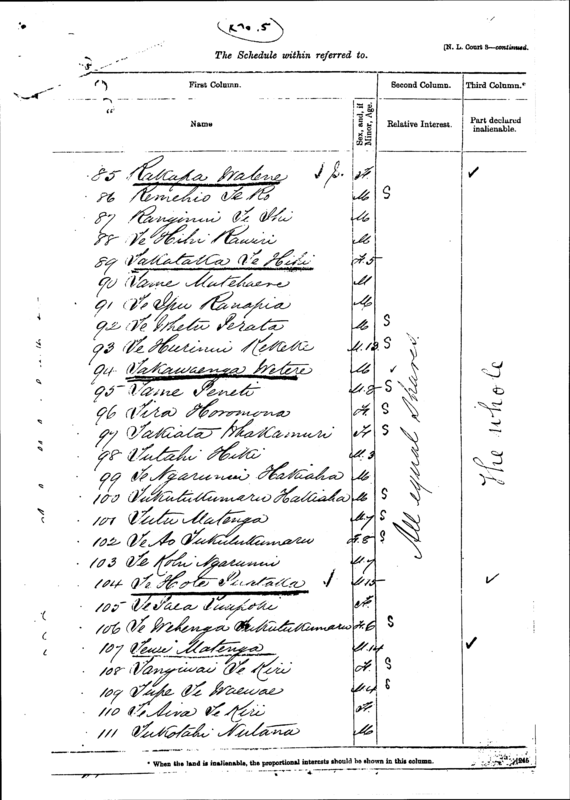 (No. 5)
[N. L. Court —continued.
The Schedule within referred to.
First Column. Second Column. Third Column.*
Name Sex, and, if Minor, Age. Relative Interest. Part declared inalienable.
85 Rakapa Watene F. ✓
86 Remehio Te Ko M S
87 Ranginui Te Ihi M
88 Te Hihi Rawiri M
89 Takataka Te Hihi F. 5
90 Tame Mutehaere M
91 Te Ipu Ranapia M
92 Te Whetu Perata M S
93 Te Hurinui M. 13 S
94 Takawaenga Wetere M
95 Tame Peneti M. 8 S
96 Tira Horomona F. S
97 Takiata Whakamuri F S
98 Tutahi M. 3
99 Te Ngarunui Hakiaha M
100 Tukutukumaru Hakiaha M S
101 Tutu Matenga M. 7 S
102 Te Ao Tukutukumaru F. 8 S
103 Te Kohi Ngarunui M. 7
104 Te Hote M. 15 ✓
105 Te Paea F.
106 Te Wehenga Tukutukumaru F. 6 S
107 Matenga M. 14 ✓
108 Tangiwai Te Kiri F. S
109 Tupe Te Waewae M 4 S
110 Te Aiva Te Kiri F.
111 Tukotahi Nutana M
All equal shares
The whole
* When the land is inalienable, the proportional interests should be shown in this column.